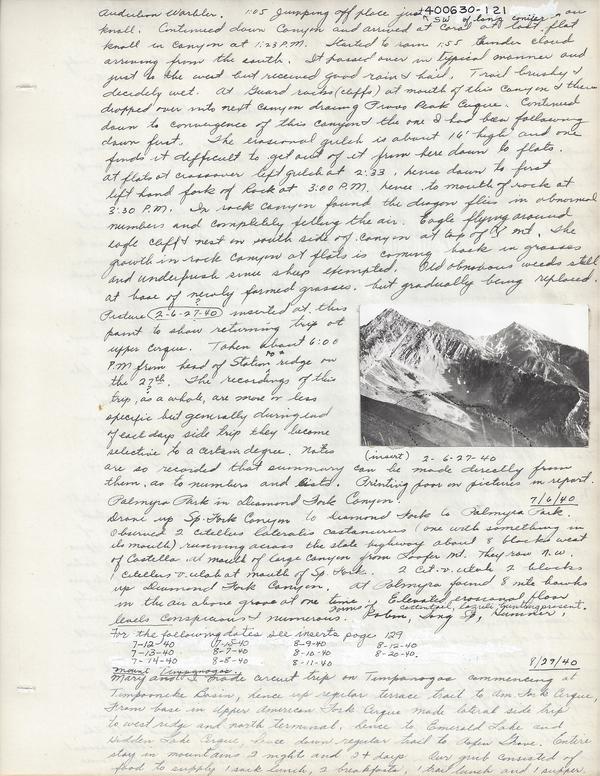 400630-121
Audubon Warbler. 1:05 Jumping off place just SW of long conifer on
knoll. Continued down Canyon and arrived at Coral at last flat
knoll in Canyon at 1:23 P.M. Started to rain 1:55 thunder cloud
arriving from the south. It passed over in typical manner and
just to the west but received good rain & hail. Trail brushy &
decidely wet. At Guard rocks (cliffs) at mouth of this canyon & then
dropped over into next canyon draing Provo Peak Cirque. Continued
down to convergence of this canyon & the one I had been following
down first. The erosional gulch is about 16' high and one
finds it difficult to get out of it from here down to flats.
at flats at crossover left gulch at 2:33, hence down to first
left hand fork of Rock at 3:00 P.M. hence to mouth of rock at
3:30 P.M. In rock canyon found the dragon flies in abnormal
numbers and completely filling the air. Eagle flying around
eagle cliff & nest on south side of canyon at top of Y mt. The
growth in rock canyon at flats is coming back in grasses
and underbrush since sheep exempted. Old obnoxious weeds still
at base of newly formed grasses. but gradually being replaced.
Picture (2-6-27-40) ? inserted at this
point to show returning trip at
upper cirque. Taken about 6:00
P.M from head of Station ridge on
the 27th. The recordings of this
trip, as a whole, are more or less
specific but generally during end
of each days side trip they become
selective to a certain degree. Notes
(insert) 2-6-27-40
are so recorded that summary can be made directly from
them, as to numbers and lists. Printing poor on pictures in report.
Palmyra Park in Diamond Fork Canyon. 7/6/40
Drove up Sp. Fork Canyon to Diamond Fork to Palmyra Park.
Observed 2 citellus lateralis castanurus (one with something in
its mouth) running across the state highway about 8 blocks west
of Castella at mouth of large canyon from Loafer Mt. They ran N.W.
1 citellus v. utah at mouth of Sp. Fork. 2 Cit. v. utah 2 blocks
up Diamond Fork Canyon. At Palmyra found 8 nite hawks
in the air above grove at one time. Elevated erosional floor
levels conspicuous & numerous. Robin, Song Sp, Hummer,
cottontail, lazuli bunting present.
For the following dates see inserts page 129
7-12-40 7-18-40 8-9-40 8-12-40
7-13-40 8-7-40 8-10-40 8-20-40.
7-14-40 8-8-40 8-11-40
Mount Timpanogas. 8/29/40
Mary and I made circuit trip on Timpanogas commencing at
Timpooneke Basin, hence up regular terrace trail to Am. Fork Cirque,
From base in Upper American Fork Cirque made lateral side trip
to west ridge and north terminal, hence to Emerald Lake and
Hidden Lake Cirque, hence down regular trail to Aspen Grove. Entire
stay in mountains 2 nights and 2+ days. Our grub consisted of
food to supply 1 sack lunch, 2 breakfasts, 1 trail lunch and 1 supper.